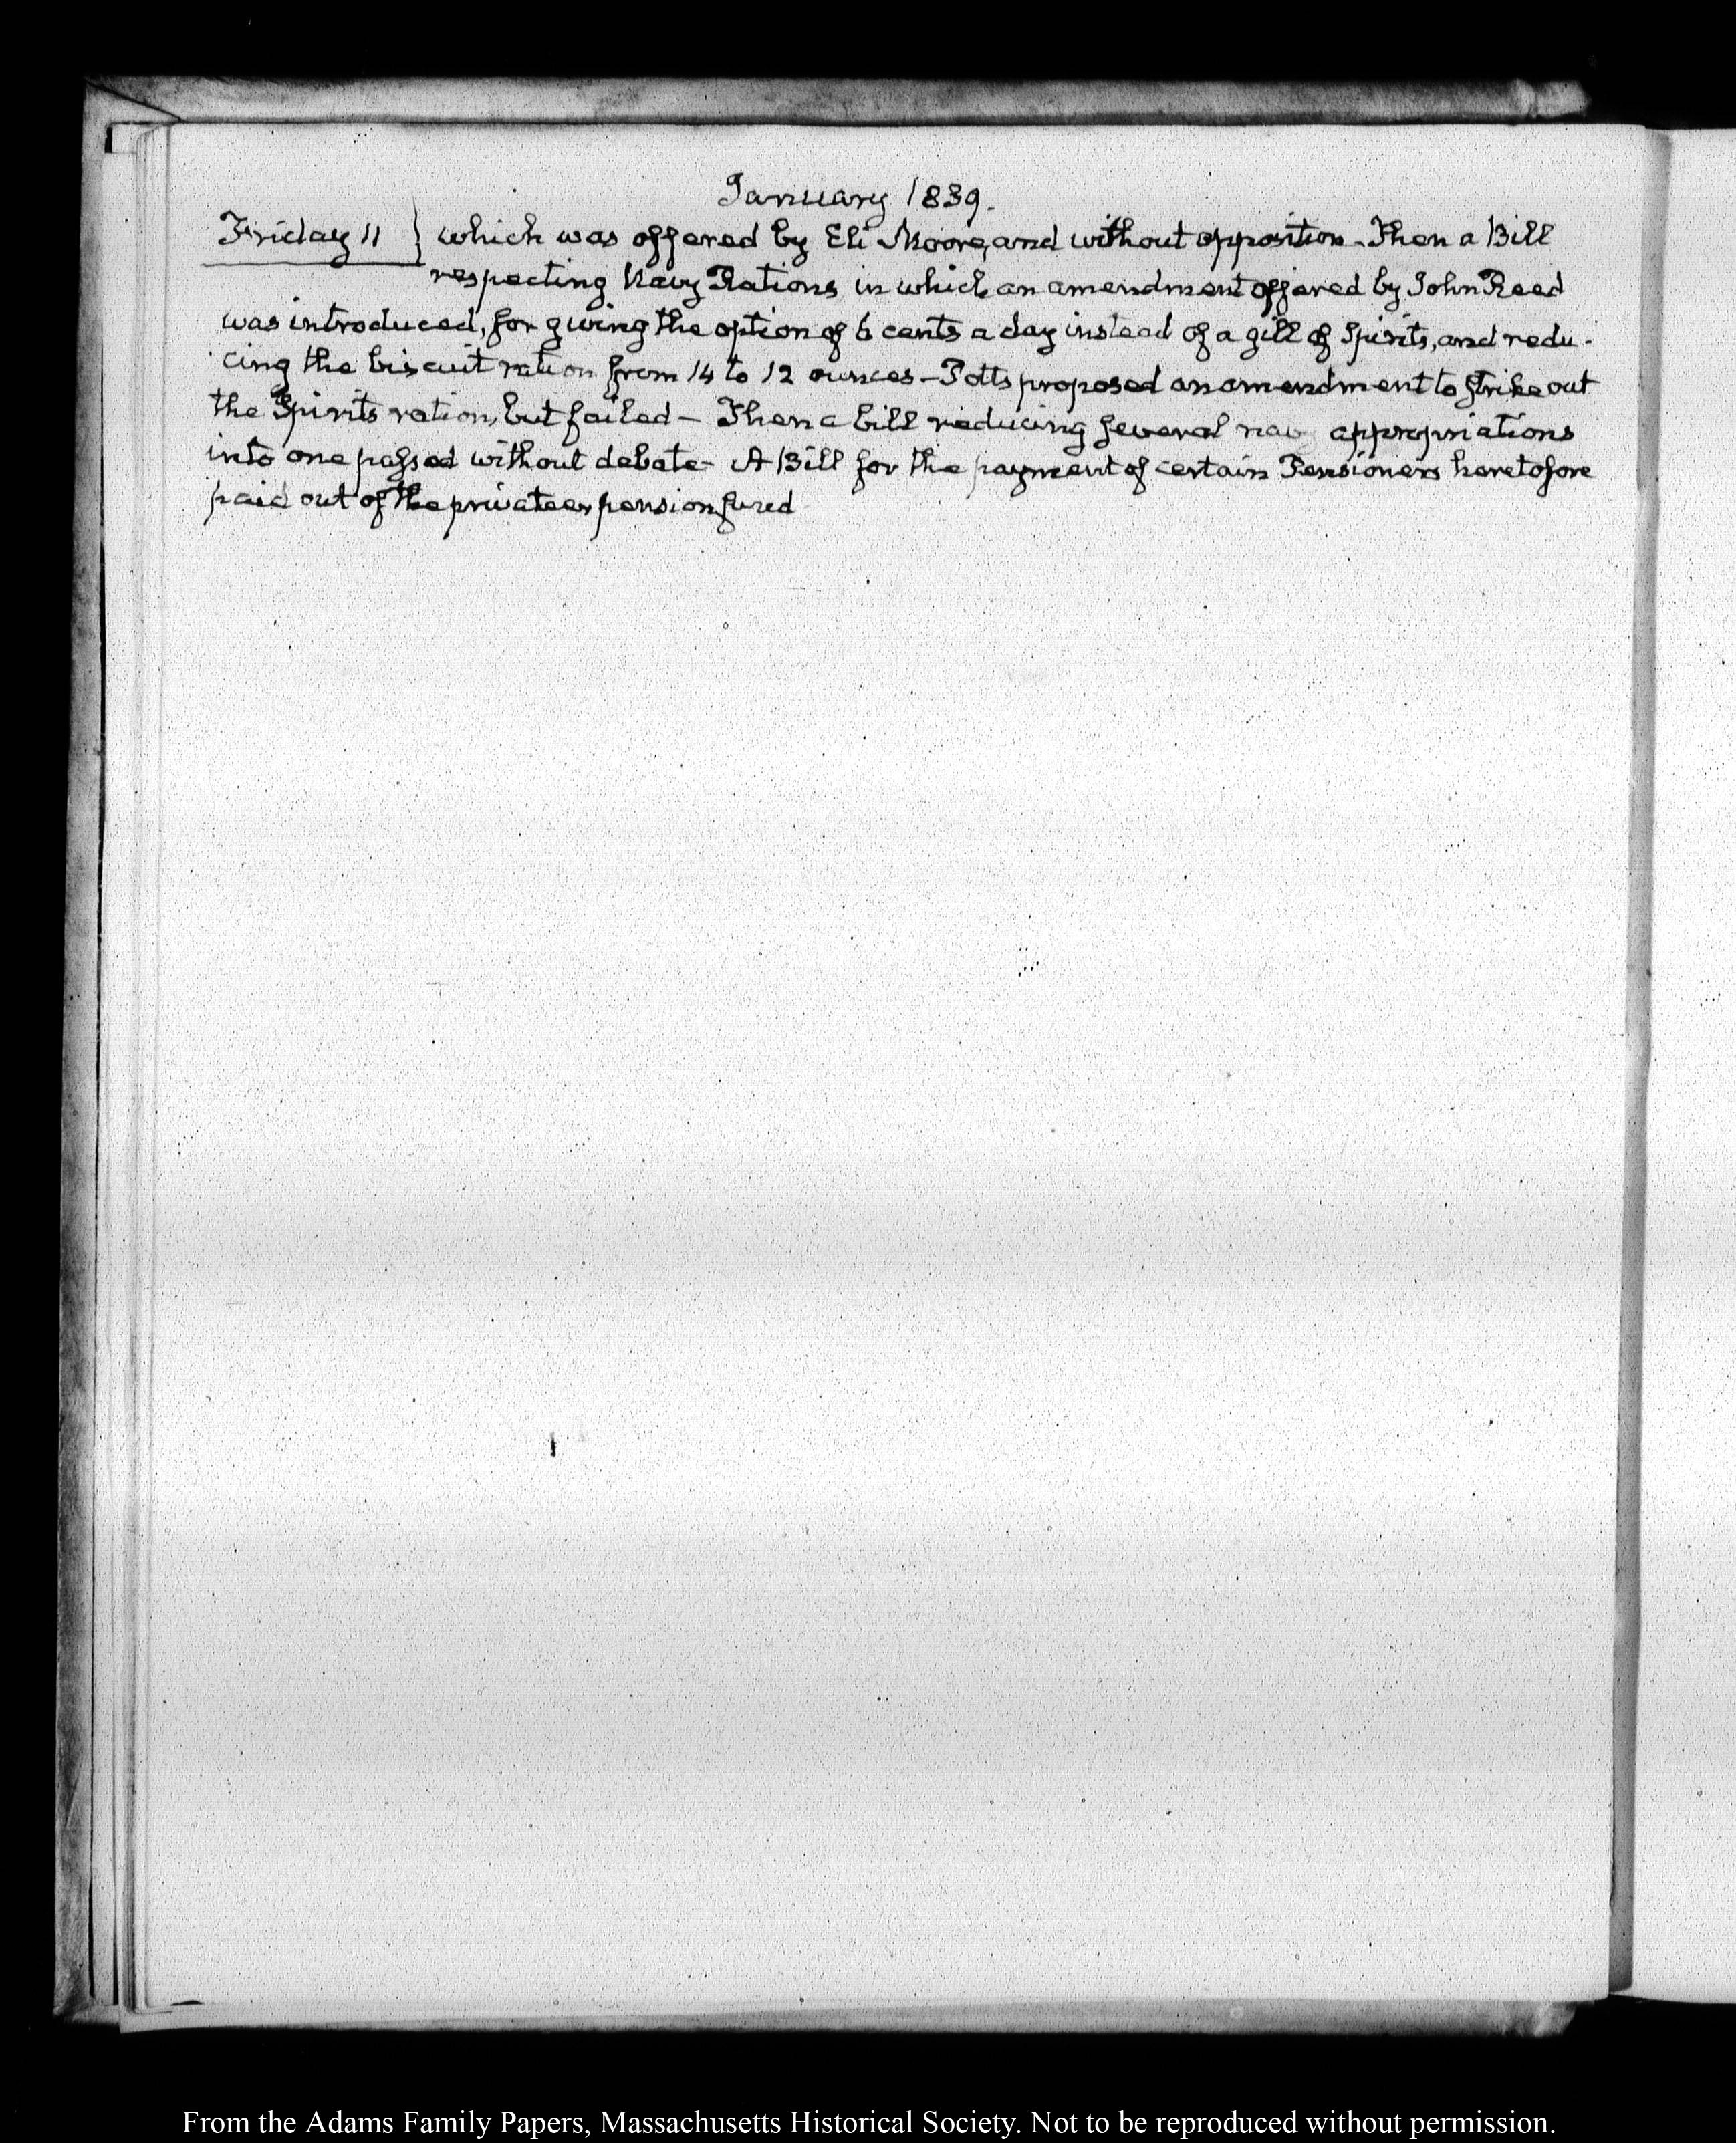 January 1839.
Friday 11 } which was offered by Eli Moore, and without opposition - Then a Bill
respecting Navy Rations in which an amendment offered by John Reed
was introduced, for giving the option of 6 cents a day instead of a gill of Spirits, and redu-
cing the biscuit ration from 14 to 12 ounces - Potts proposed an amendment to strike out
the Spirits ration, but failed - Then a bill reducing several nav appropriations
into one passed without debate - A Bill for the payment of certain Pensioners heretofore
paid out of the privateer pension fund
From the Adams Family Papers, Massachusetts Historical Society. Not to be reproduced without permission.